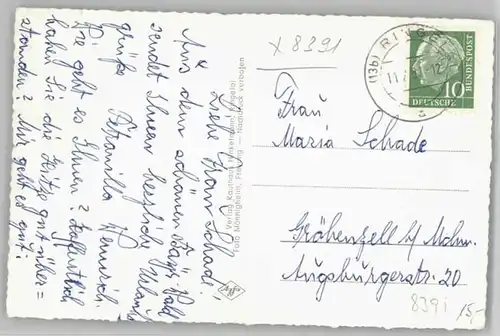 Liebe Frau Schade!
Aus dem schönen Bayr. Wald
sendet Ihnen herzliche Urlaubs
grüße Heinrich
Wie geht es Ihnen? Hoffentlich
haben Sie die Hitze gut über=
standen? Mir geht es gut.
Verlag Kaufhaus
Foto Freyung — Nachdruck verboten
Agfa
x 8391
(13b) RING
DEUTSCHE
BUNDESPOST
10
Frau
Maria Schade
Gröbenzell b/ Mchn.
Augsburgerstr. 20
839i
15,-